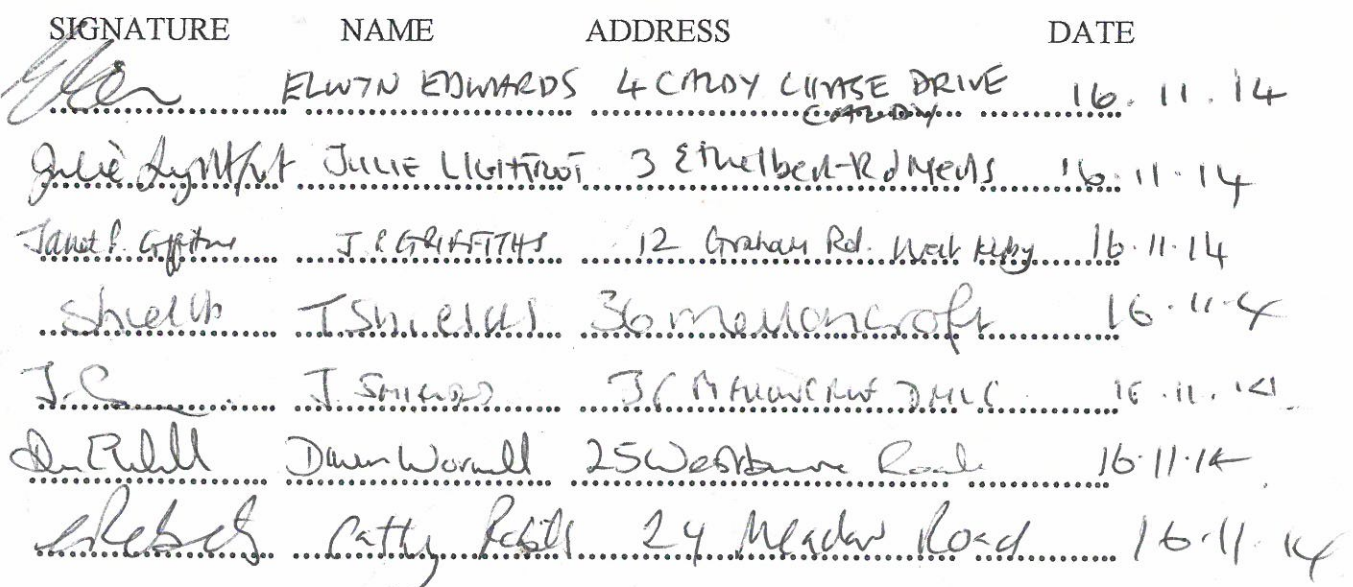 SIGNATURE NAME ADDRESS DATE
ELWYN EDWARDS 4 CALDY CHASE DRIVE 16.11.14
CALDY
Julie Lightfoot JULIE LIGHTFOOT 3 Ethelbert Rd Meols 16.11.14
Janet P. Griffiths J P GRIFFITHS 12 Graham Rd. West Kirby 16.11.14
Shields T Shields 36 Melloncroft 16.11.4
J. J. SHIELDS 36 MELLONCROFT DRIVE 16.11.14
Dawn 25 Westbourne Road 16.11.14
Cathy 24 Meadow Road 16.11.14